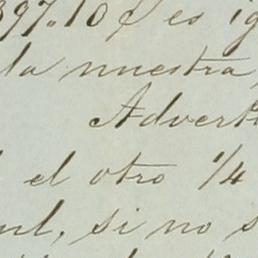 397.10 ¢ es ig
la nuestra,
Advert
el otro 1/4
ul, si no s